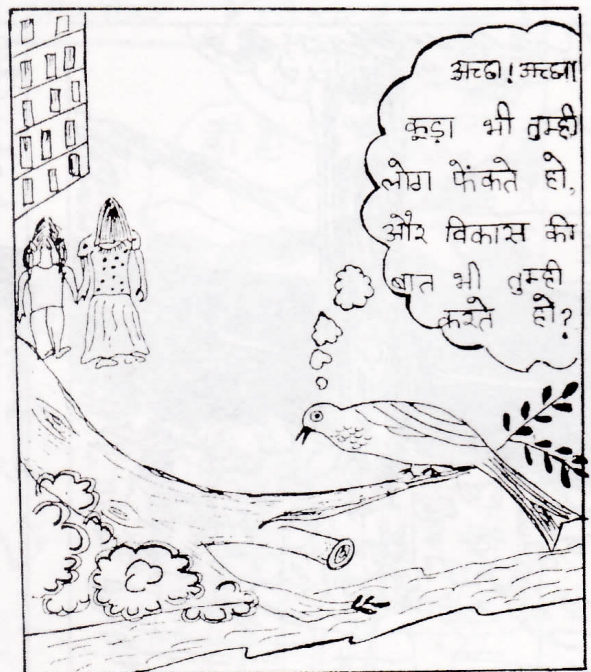 अच्छा! अच्छा
कूड़ा भी तुम्ही
लोग फेंकते हो,
और विकास की
बात भी तुम्ही
करते हो?